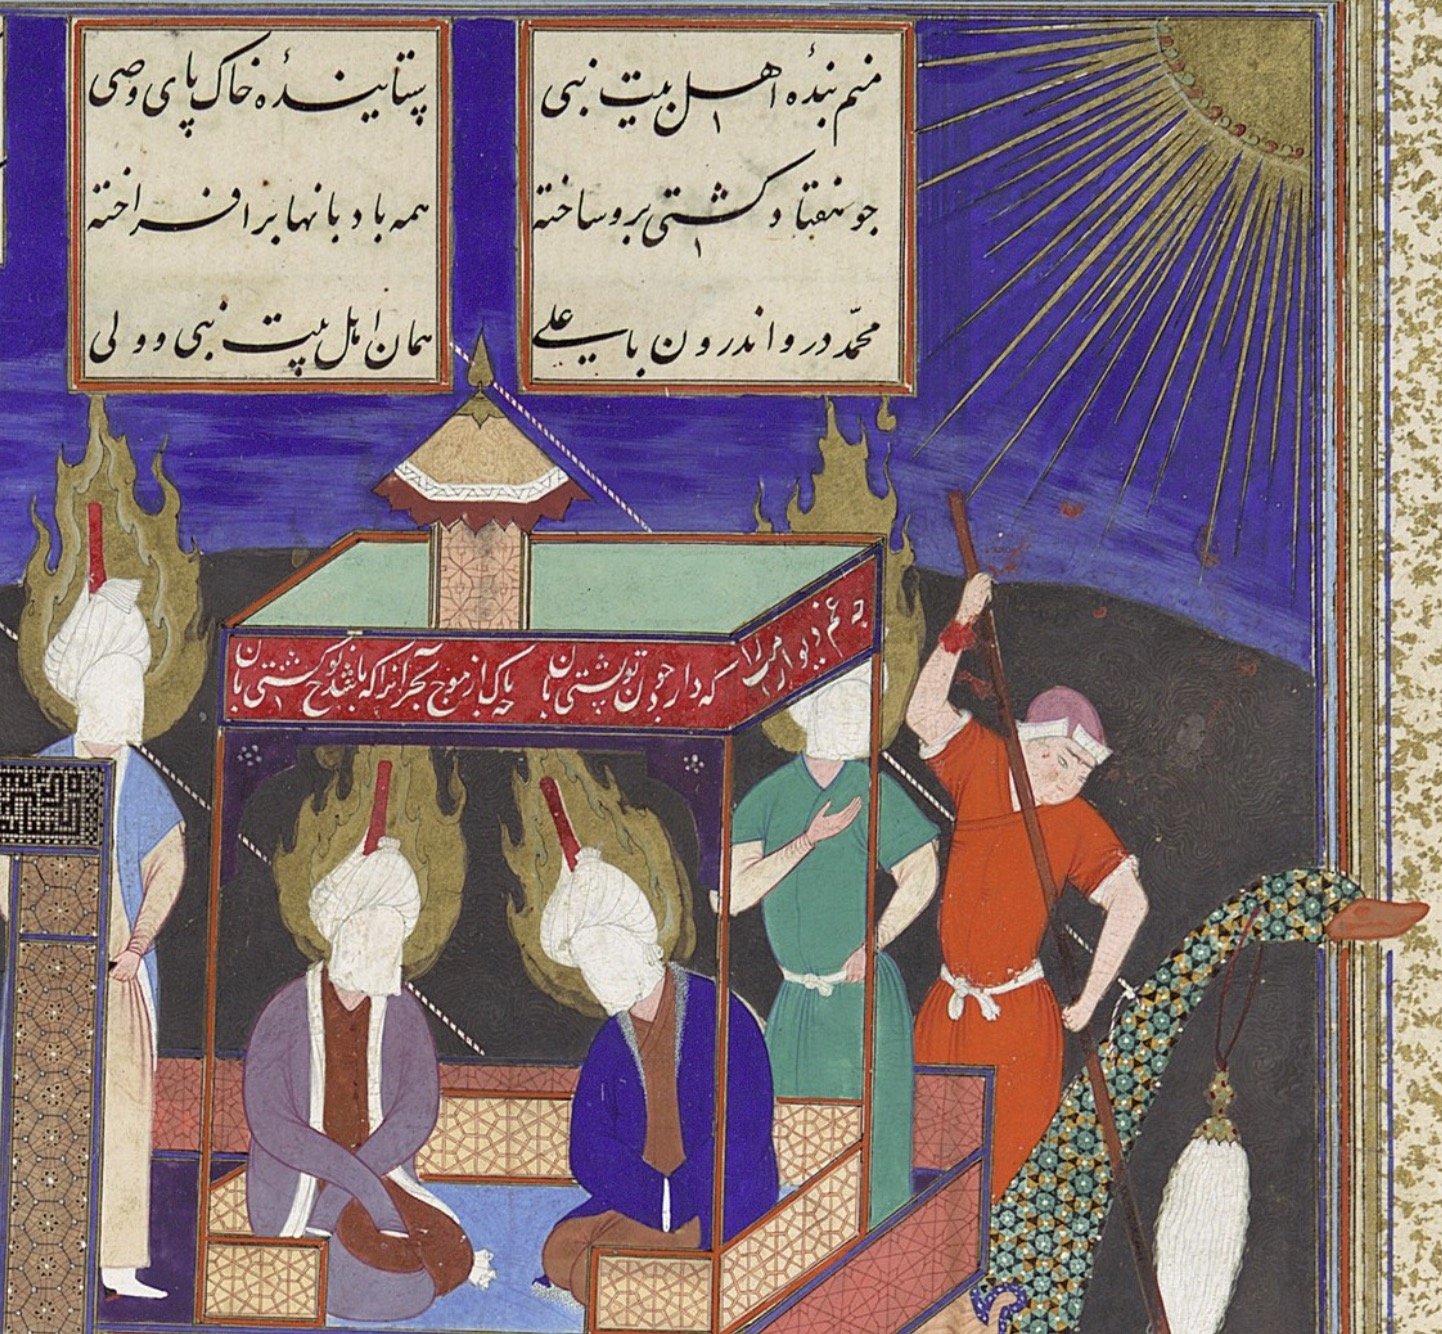 منم بندهٔ اهل بیت نبی
ستایندهٔ خاک پای وصی
چو هفتاد کشتی برو ساخته
همه بادبانها برافراخته
محمّد درو اندرون با علی
همان اهل بیت نبی و ولی
چه غم دیوار امت را که دارد چون تو پشتی بان چه باک از موج بحر انرا که باشد نوح کشتی بان